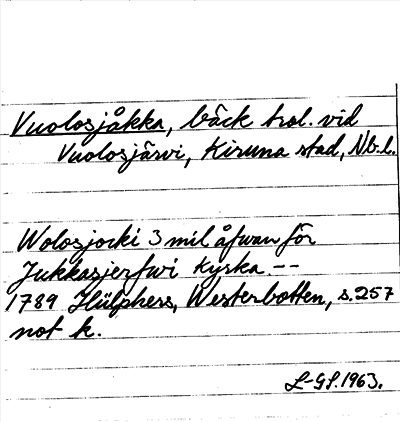 Vuolosjåkka, bäck trol. vid
Vuolosjärvi, Kiruna stad, Nb. l.
Wolosjocki 3 mil åfwan för
Jukkasjerfwi Kyrka. --
1789 Hülphers, Westerbotten, s. 257
not k.
L-GL. 1963.